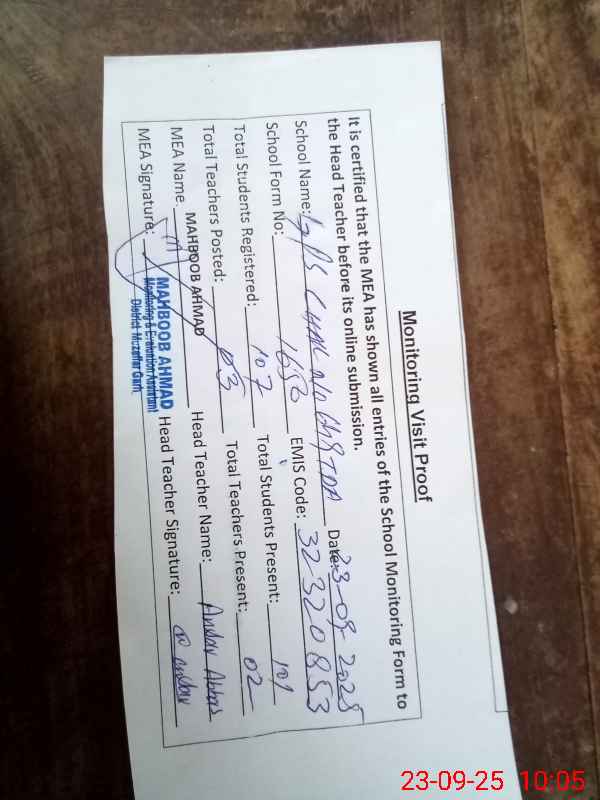 Monitoring Visit Proof
It is certified that the MEA has shown all entries of the School Monitoring Form to
the Head Teacher before its online submission.
School Name: GPS CHAH Date: 23-09-2025
School Form No: 1650 EMIS Code: 32320853
Total Students Registered: 107 Total Students Present: 101
Total Teachers Posted: 03 Total Teachers Present: 02
MEA Name MAHBOOB AHMAD Head Teacher Name: Abbas
MEA Signature: Head Teacher Signature:
MAHBOOB AHMAD
Monitoring & Evaluation Assistant
District Muzaffar Garh
23-09-25 10:05